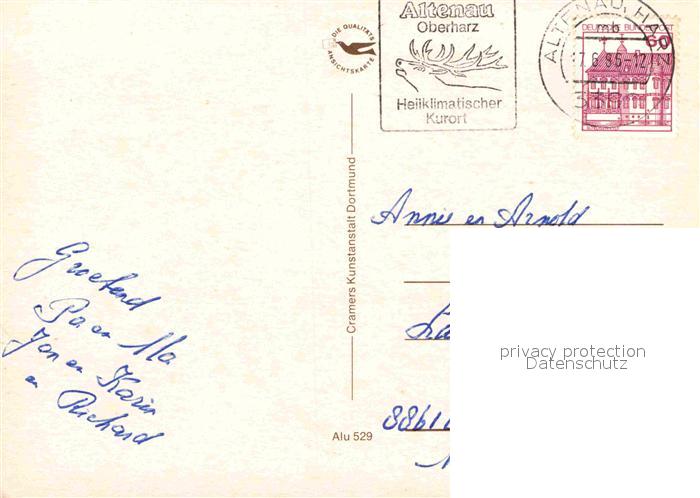 DIE QUALITÄTS
ANSICHTSKARTE
Altenau
Oberharz
Heilklimatischer
Kurort
ALTENAU, HARZ
mb
17.6.86-12
DEUTSCHE BUNDESPOST
60
Cramers Kunstanstalt Dortmund
Annie en Arnold
privacy protection
Datenschutz
Groetend
Pa en Ma
Jan en Karin
en Richard
Alu 529